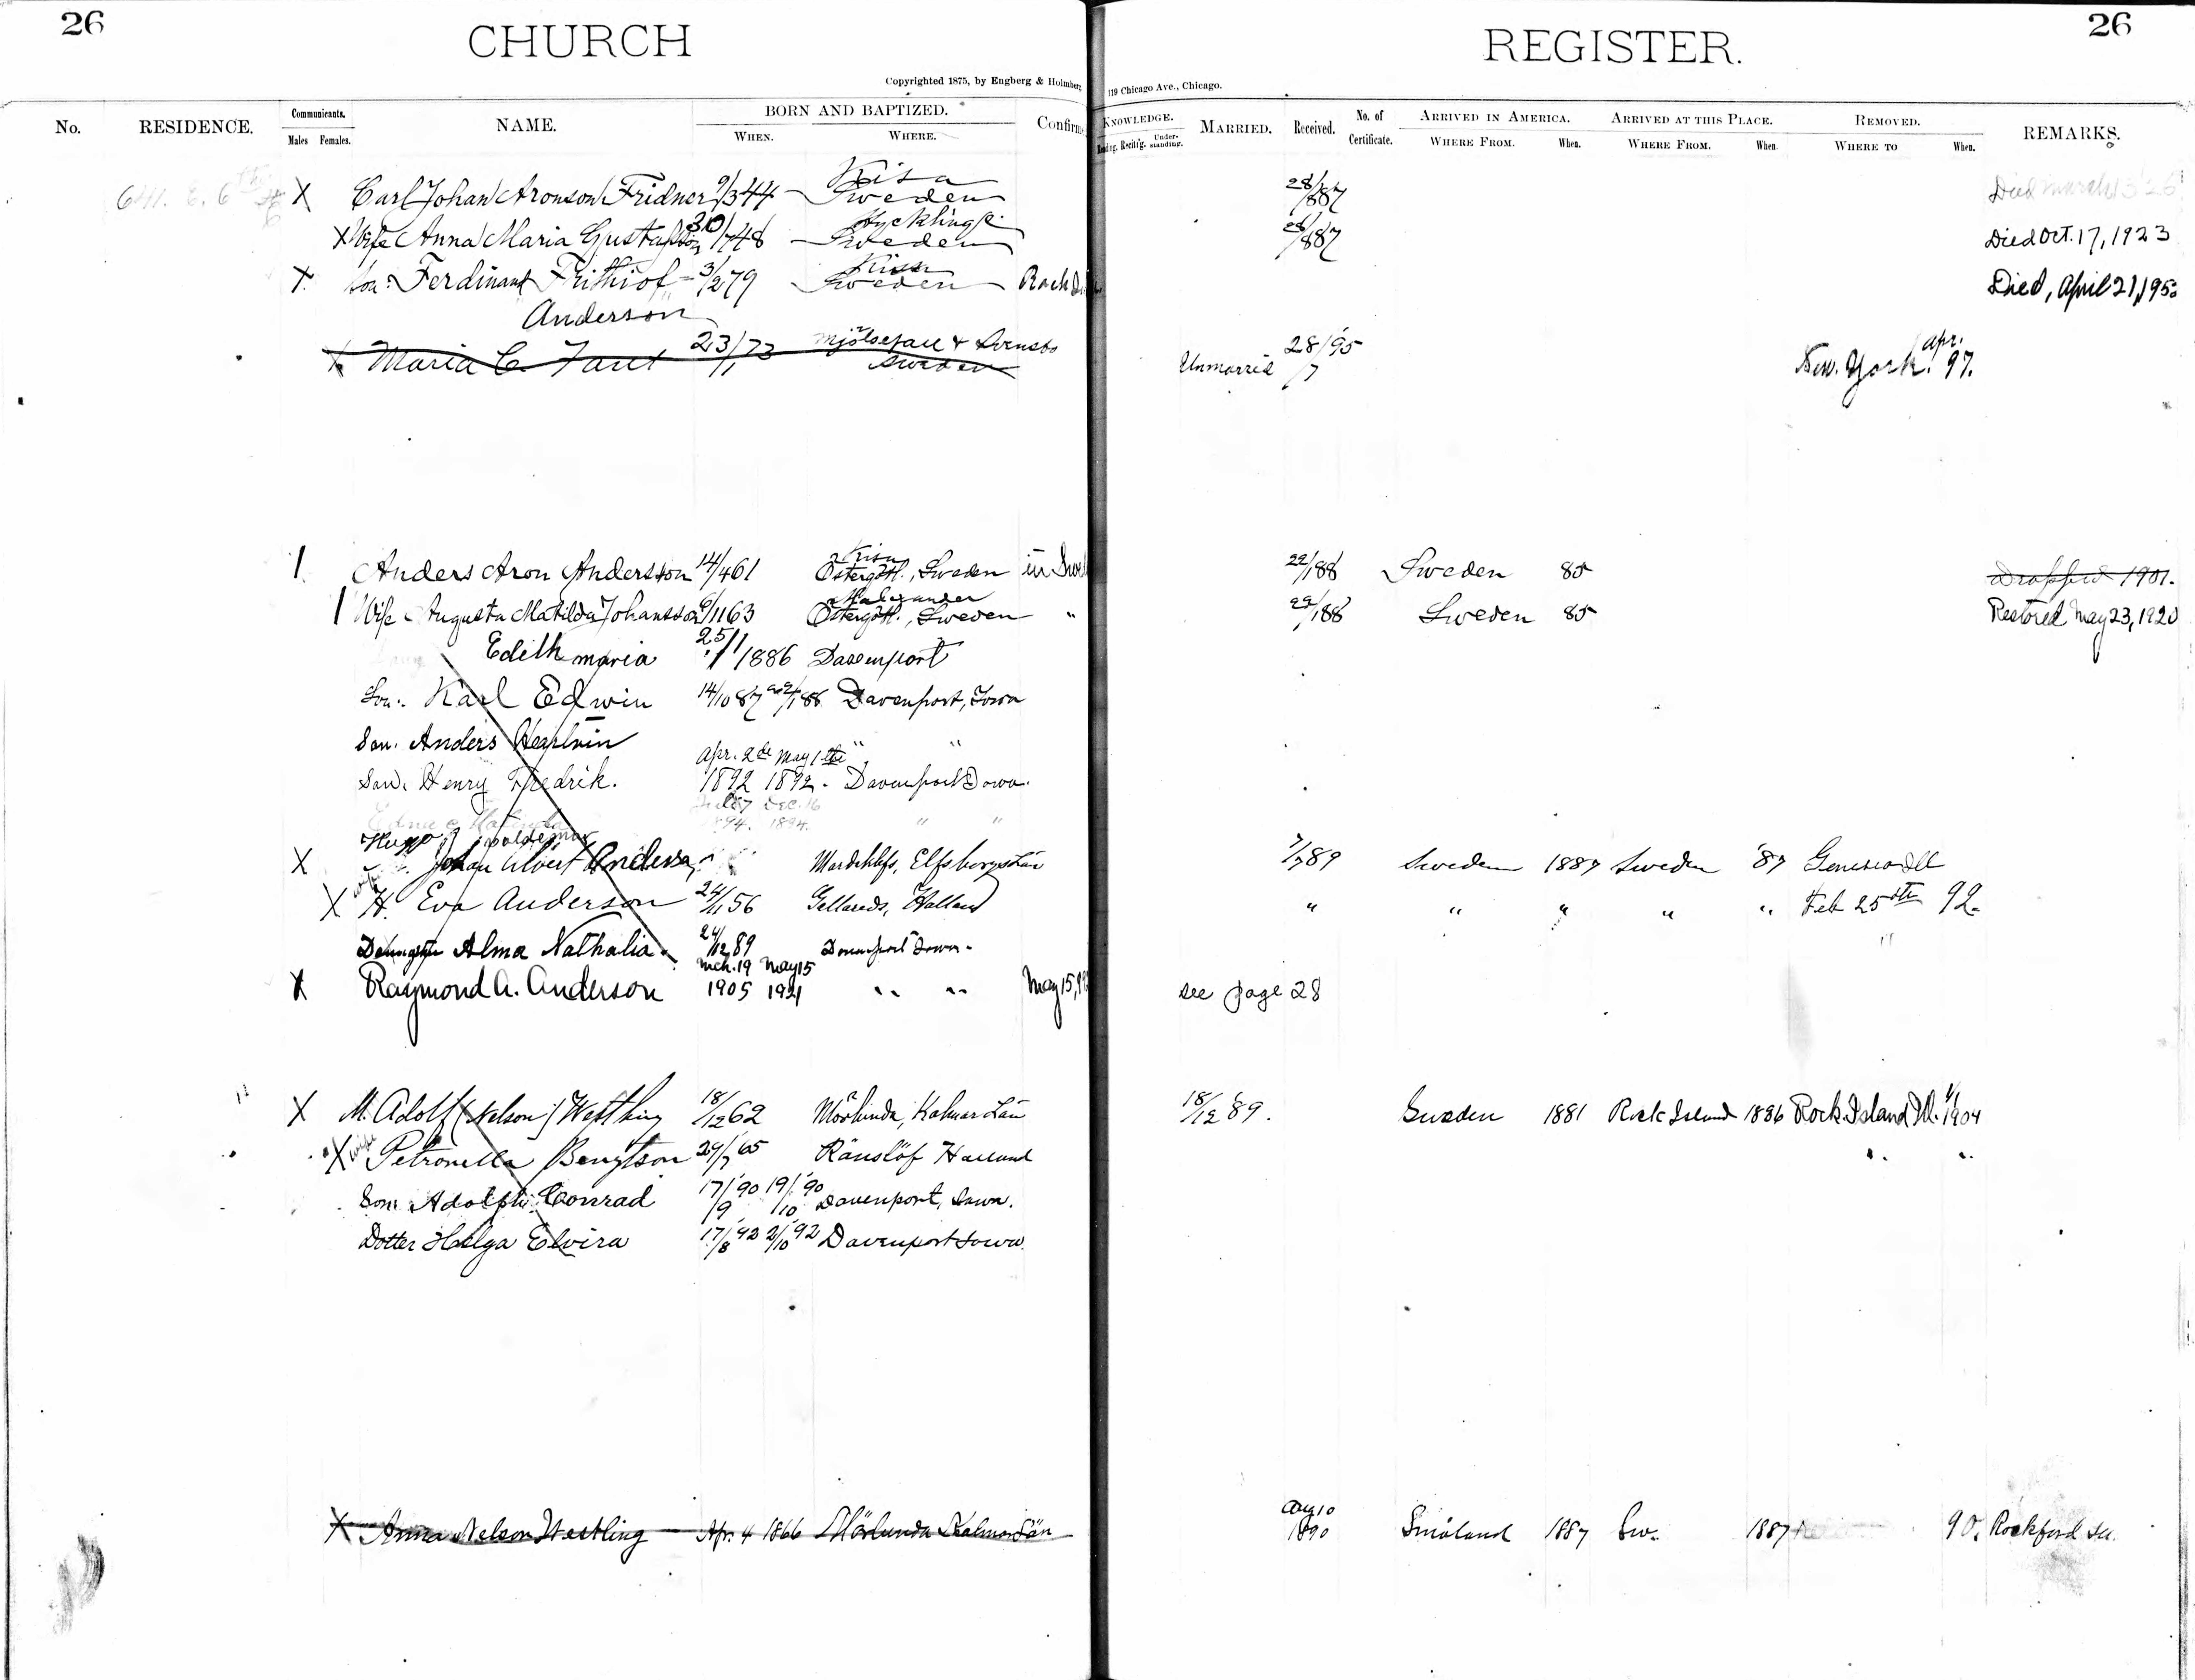 26 CHURCH REGISTER. 26
Copyrighted 1875, by Engberg & Holmberg 119 Chicago Ave., Chicago.
No. RESIDENCE. Communicants. Males Females. NAME. BORN AND BAPTIZED. WHEN. WHERE. Confirm KNOWLEDGE. Recit'g. Under-standing. MARRIED. Received. No. of Certificate. ARRIVED IN AMERICA. WHERE FROM. When. ARRIVED AT THIS PLACE. WHERE FROM. When. REMOVED. WHERE TO When. REMARKS.
Kisa
641. E. 6th X Carl Johan Aronson Fridner 9/3 44 Sweden 28/1 87 Died March
Hycklinge
X Wife Anna Maria Gustafsson 30/7 48 Sweden 28/1 87 Died Oct. 17, 1923
Kisa
X Son: Ferdinand Frithiof 3/2 79 Sweden Rock Died, April 21, 195
Anderson
X Maria C. Faut 23/1 73 & Svensbo Sweden Unmarried 28/7 '95 New York. Apr. 97.
Kisa
1 Anders Aron Andersson 14/4 61 Östergötl., Sweden in Swe 22/1 88 Sweden 85 Dropped 1901.
Malexander
1 Wife Augusta Matilda Johansson 6/11 63 Östergötl., Sweden " 22/1 88 Sweden 85 Restored May 23, 1920
Edith Maria 25/1 1886 Davenport
Son: Karl Edwin 14/10 87 22/1 88 Davenport, Iowa
Son. Anders " "
Apr. 2de May 1
Son. Henry Fredrik. 1892 1892. Davenport Iowa.
Dec. 16
1894. 1894. " "
Hugo Woldemar
X Johan Albert Anderson Elfsborgs Län 7/7 89 Sweden 1887 Sweden '87 Geneseo Ill
X H. Eva Anderson 24/11 56 Gellareds, Halland " " " " " Feb 25th 92.
Alma Nathalia. 24/12 89 Davenport Iowa.
Mch. 19 May 15
X Raymond A. Anderson 1905 1921 " " May 15, 19 see page 28
X M. Adolf (Nelson) Westling 18/12 62 Mörlunda, Kalmar Län 18/12 89. Sweden 1881 Rock Island 1886 Rock Island Ill. 1/1 1904
X wife Petronella Bengtson 29/7 '65 Ränslöf Halland " "
Son Adolph Conrad 17/9 '90 19/10 '90 Davenport, Iowa.
Dotter Helga Elvira 17/8 '92 2/10 '92 Davenport Iowa.
X Anna Nelson Westling Apr. 4 1866 Mörlunda Kalmar Län Aug 10 1890 Småland 1887 Sw. 1887 90. Rockford Ill.